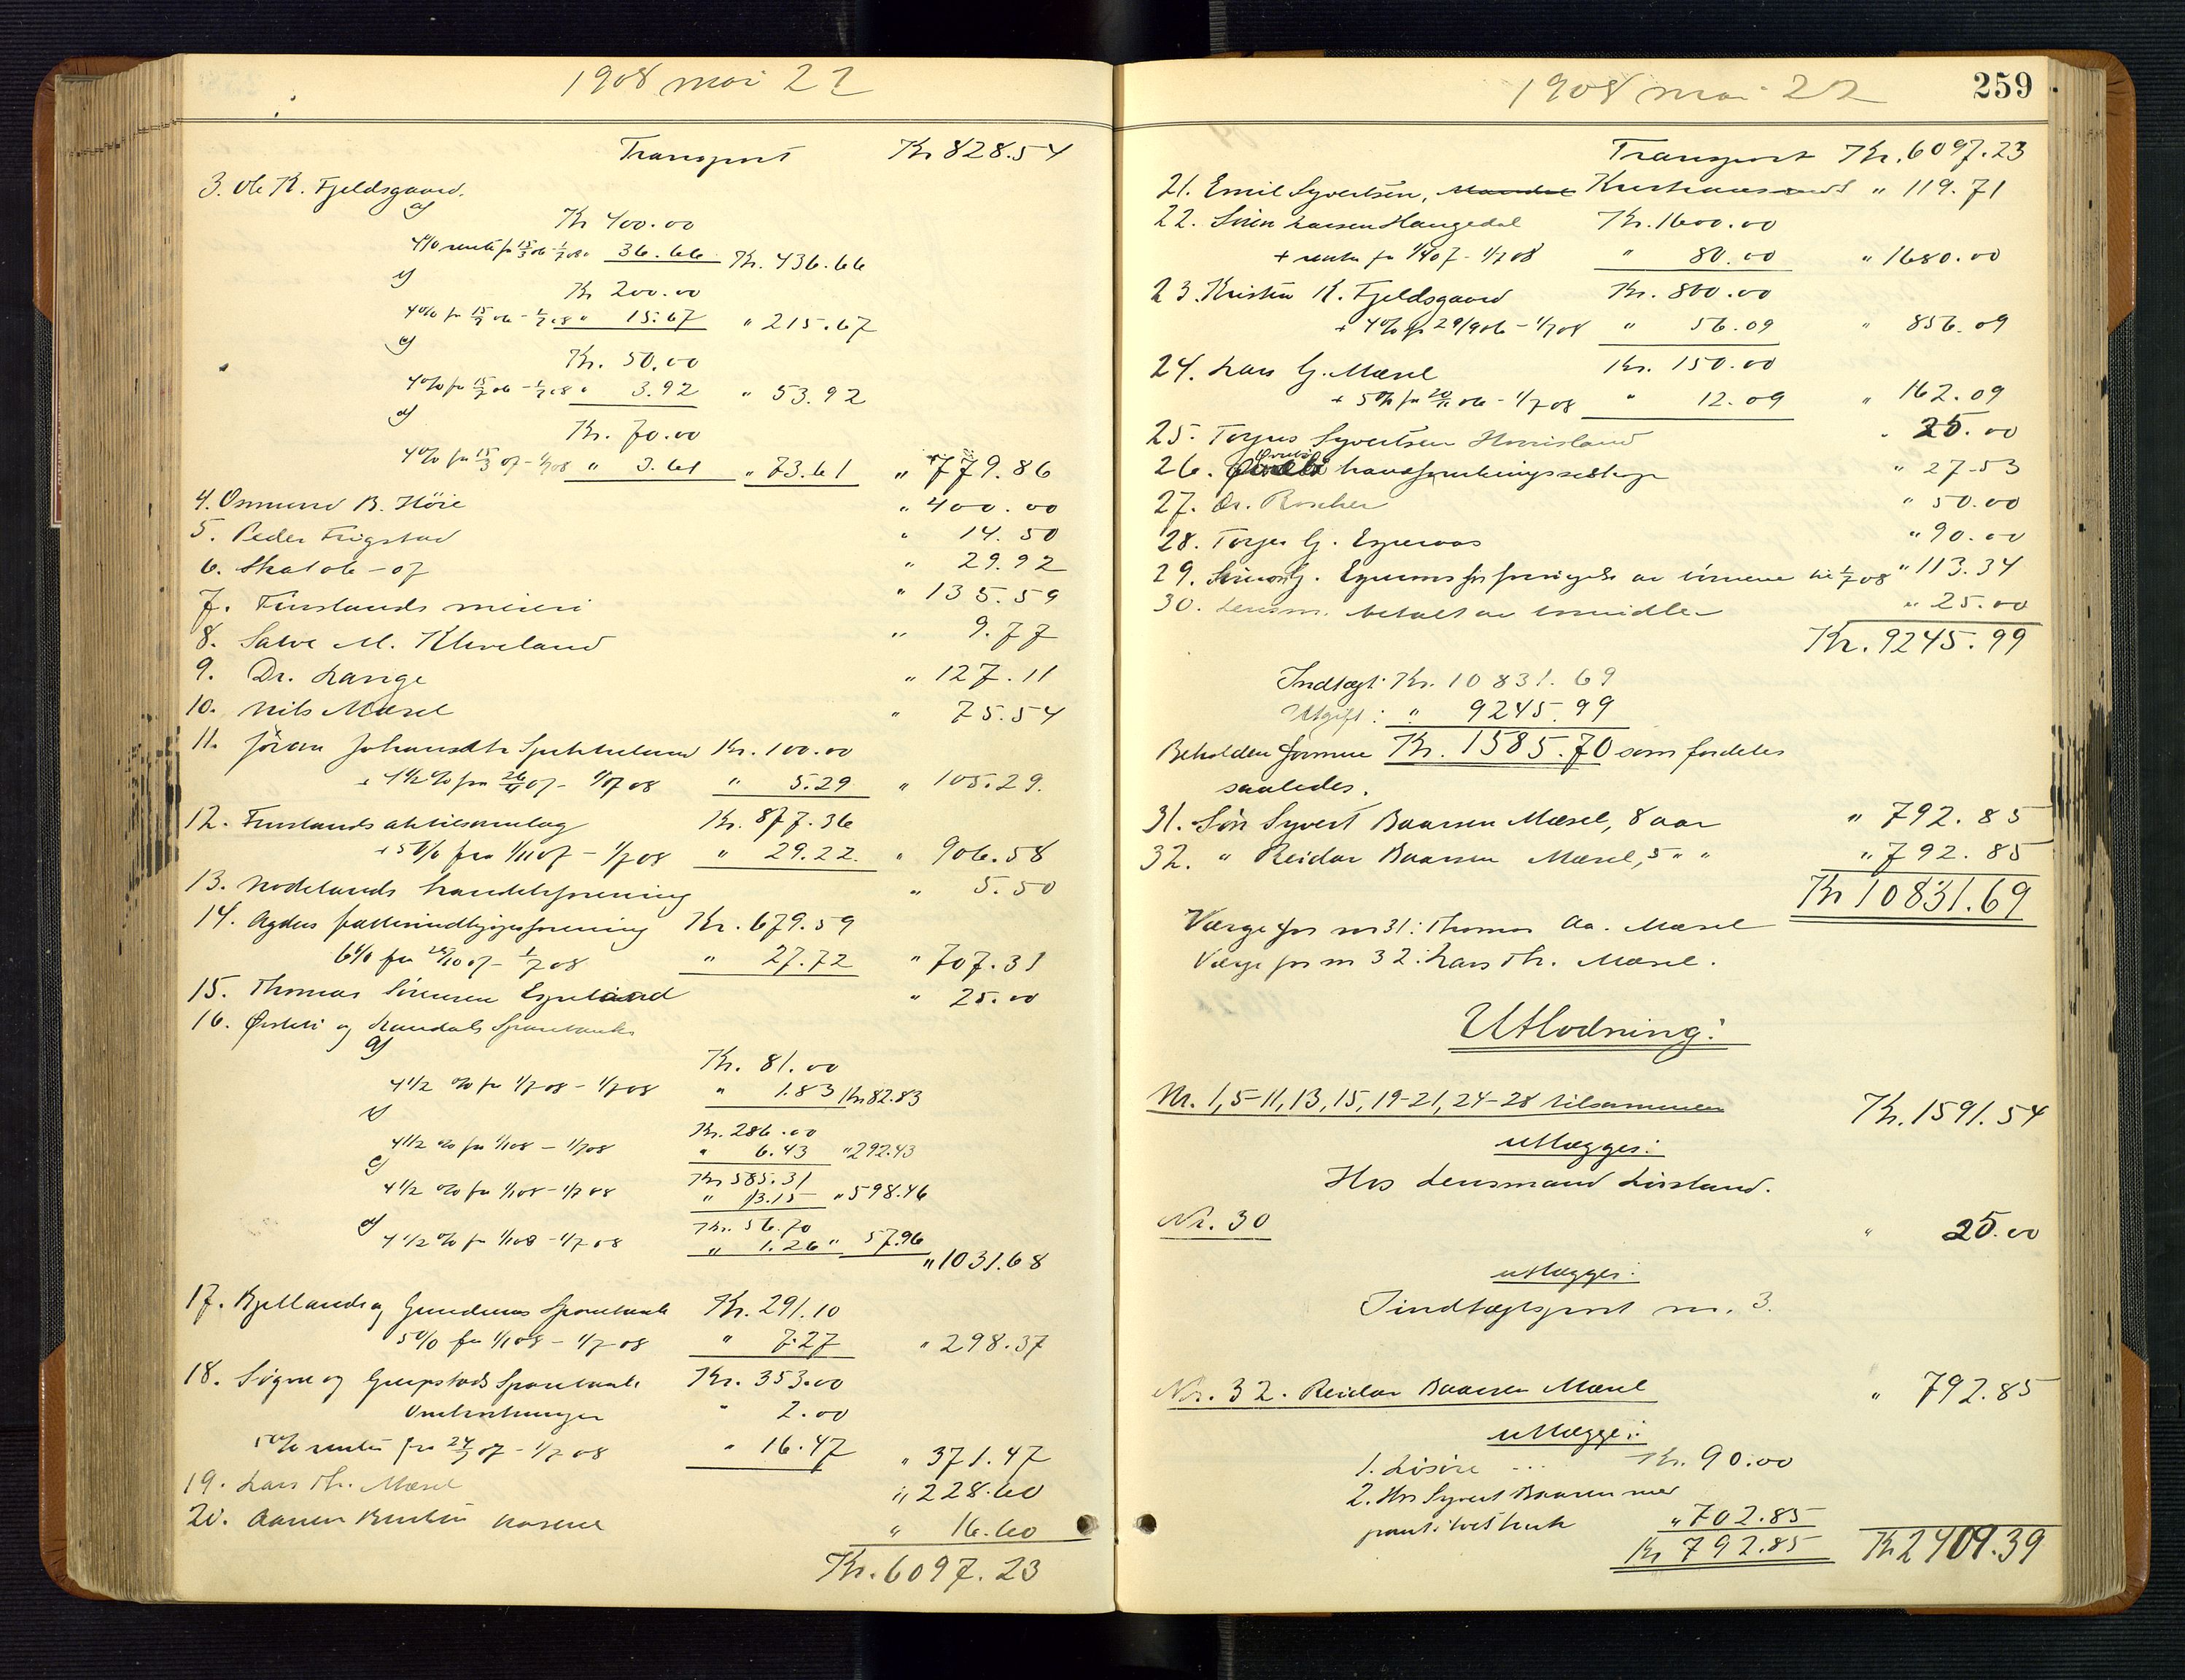 1908 mai 22
Transport Kr 828.54
3. Ole K. Fjeldsgaard.
a) Kr 400.00
4% rente fra 15/3 06 - 1/7 08 " 36.66 Kr. 436.66
b) Kr 200.00
4% fra 15/7 06 - 1/7 08 " 15.67 " 215.67
c) Kr. 50.00
4% fra 15/7 06 - 1/7 08 " 3.92 " 53.92
d) Kr. 70.00
4% fra 15/3 07 - 1/7 08 " 3.61 " 73.61 " 779.86
4. Osmund B. Høie " 400.00
5. Peder Frigstad " 14.50
6. Skatob - 07 " 29.92
7. Finslands meieri " 135.59
8. Salve M. Kleveland " 9.77
9. Dr. Lange " 127.11
10. Nils Mæsel " 75.54
11. Jöran Johansdtr Kr. 100.00
+ 4 1/2 % fra 07 - 1/7 08 " 5.29 " 105.29.
12. Finslands Kr. 877.36
+ 5% fra 1/11 07 - 1/7 08 " 29.22. " 906.58
13. Nodelands handelsforening " 5.50
14. Agders fælles Kr. 679.59
6% fra 10 07 - 1/7 08 " 27.72 " 707.31
15. Thomas Sörensen " 25.00
16. Øvrebø og Sparebank
a) Kr. 81.00
4 1/2 % fra 1/1 08 - 1/7 08 " 1.83 Kr 82.83
b) Kr. 286.00
4 1/2 % fra 1/1 08 - 1/7 08 " 6.43 " 292.43
c) Kr 585.31
4 1/2 % fra 1/1 08 - 1/7 08 " 13.15 " 598.46
d) Kr. 56.70
4 1/2 % fra 1/1 08 - 1/7 08 " 1.26 " 57.96
" 1031.68
17. Bjellands og Grindems Sparebank Kr. 291.10
5% fra 1/1 08 - 1/7 08 " 7.27 " 298.37
18. Søgne og Greipstads Sparebank Kr. 353.00
Omkostninger " 2.00
5% rente fra 07 - 1/7 08 " 16.47 " 371.47
19. Lars Th. Mæsel " 228.60
20. Aanen " 16.60
Kr. 6097.23
1908 mai 22 259
Transport Kr. 6097.23
21. Emil Syvertsen, Kristianssand " 119.71
22. Sören Larsen Haugedal Kr. 1600.00
+ rente fra 1/4 07 - 1/7 08 " 80.00 " 1680.00
23. Kristen K. Fjeldsgaard Kr. 800.00
+ 4% fra 29/9 06 - 1/7 08 " 56.09 " 856.09
24. Lars G. Mæsel Kr. 150.00
+ 5% fra 20/11 06 - 1/7 08 " 12.09 " 162.09
25. Torjus Syvertsen " 25.00
26. Øvrebø " 27.53
27. Dr. Roscher " 50.00
28. Torjus G. " 90.00
29. G. av til 1/7 08 " 113.34
30. Lensm. betalt av " 25.00
Kr. 9245.99
Indtægt: Kr. 10831.69
Utgift: " 9245.99
Beholden formue Kr. 1585.70 som fordeles
saaledes.
31. Sön Syvert Baarsen Mæsel, 8 aar " 792.85
32. " Reidar Baarsen Mæsel, 5 " " " 792.85
Kr 10831.69
Værge for nr 31: Thomas Aa. Mæsel
Værge for nr 32: Lars Th. Mæsel.
Utlodning:
Nr. 1, 5-11, 13, 15, 19-21, 24-28 tilsammen Kr. 1591.54
utlægges:
Hos Lensmand Lirsland.
Nr. 30 " 25.00
utlægges:
I indtægtspost nr. 3.
Nr. 32. Reidar Baarsen Mæsel " 792.85
utlægges:
1. Lösöre ... Kr. 90.00
2. Hos Syvert Baarsen med
pant i " 702.85
Kr 792.85 Kr 2409.39